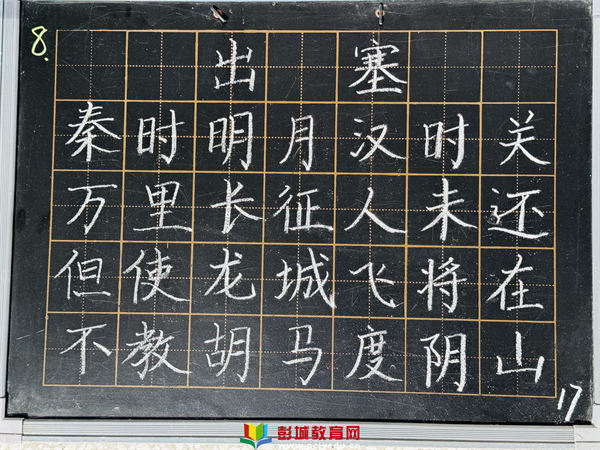 8.
出塞
秦时明月汉时关
万里长征人未还
但使龙城飞将在
不教胡马度阴山
17
彭城教育网